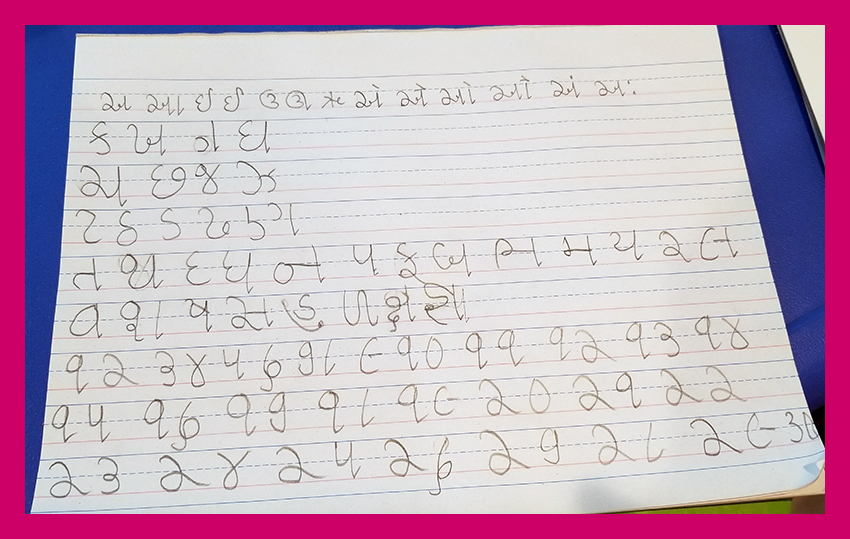 અ આ ઇ ઈ ઉ ઊ ઋ એ ઐ ઓ ઔ અં અઃ
ક ખ ગ ઘ
ચ છ જ ઝ
ટ ઠ ડ ઢ ણ
ત થ દ ધ ન પ ફ બ ભ મ ય ર લ
વ શ ષ સ હ ળ ક્ષ જ્ઞ
૧ ૨ ૩ ૪ ૫ ૬ ૭ ૮ ૯ ૧૦ ૧૧ ૧૨ ૧૩ ૧૪
૧૫ ૧૬ ૧૭ ૧૮ ૧૯ ૨૦ ૨૧ ૨૨
૨૩ ૨૪ ૨૫ ૨૬ ૨૭ ૨૮ ૨૯ ૩૦